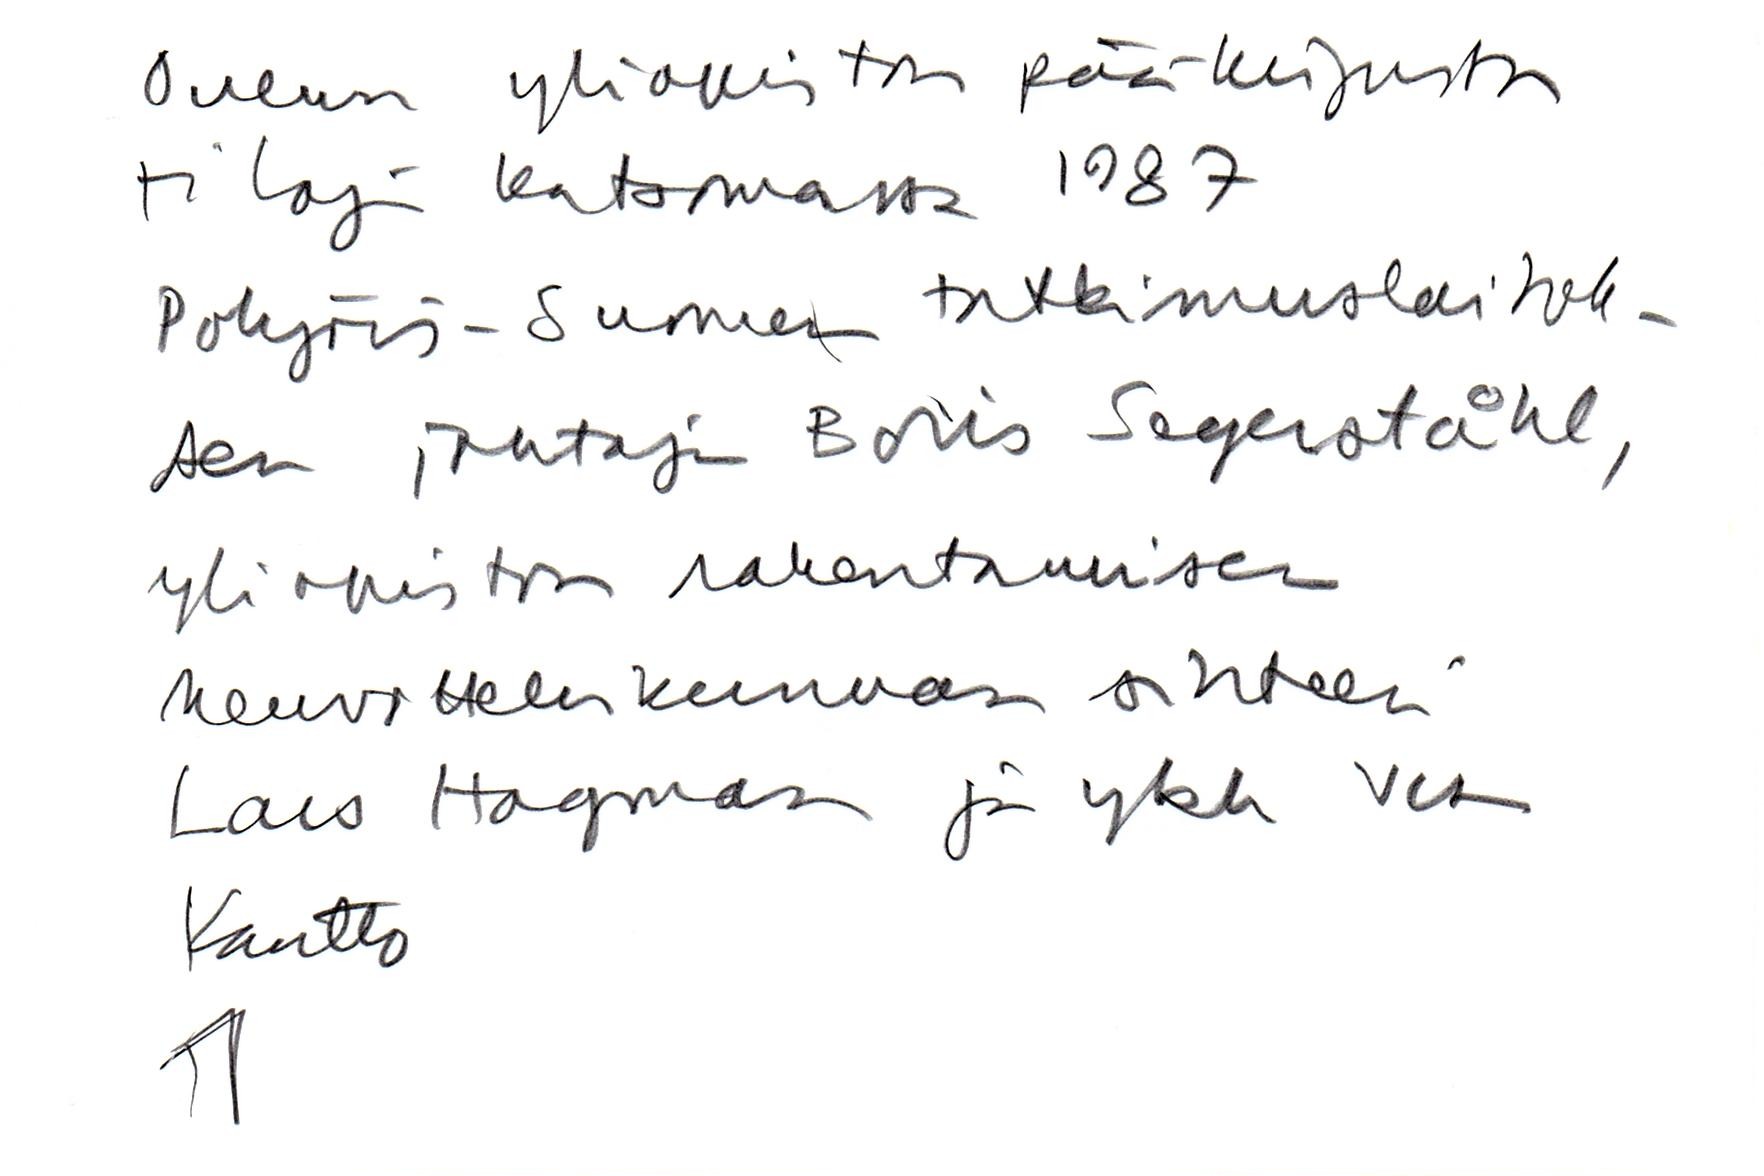 Oulun yliopiston pääkirjaston
tiloja katsomassa 1987
Pohjois-Suomen tutkimuslaitok-
sen johtaja Boris Segerståhl,
yliopiston rakentamisen
neuvottelukunnan sihteeri
Lars Hagman ja yks Vesa
Kautto